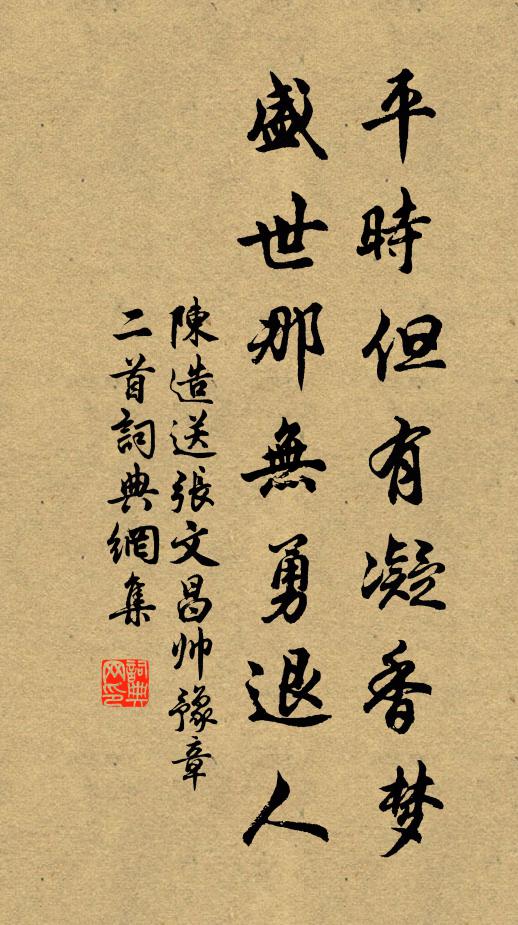 平時但有凝香梦
盛世那無勇退人
陳造送張文昌帅豫章
二首詞典網集
詞典网印